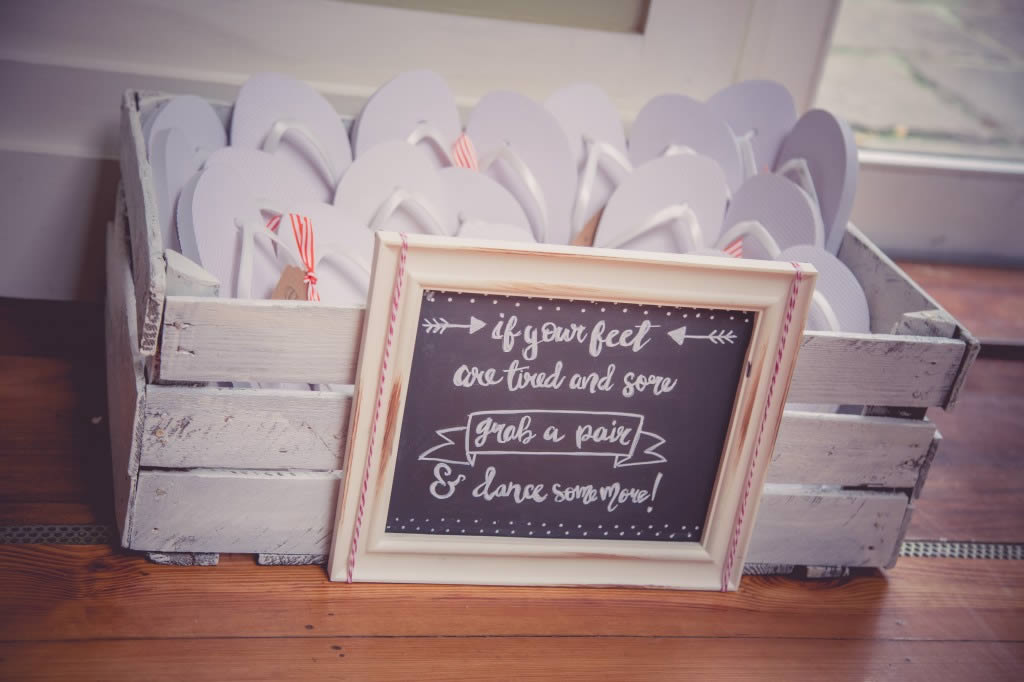 if your feet
are tired and sore
grab a pair
& dance some more!